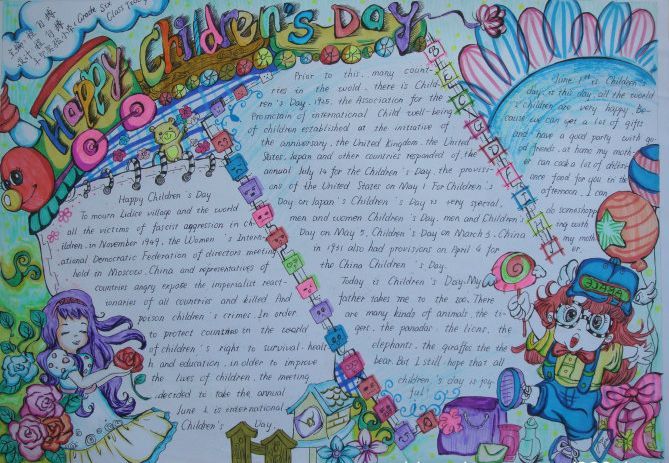 Happy Children's Day
(Grade Six
Class
Happy Children's Day
To mourn Lidice village and the world
all the victims of fascist aggression in ch-
ildren, in November 1949, the Women's Intern-
ational Democratic Federation of directors meeting
held in Moscow, China and representatives of
countries angry expose the imperialist react-
ionaries of all countries and killed And
poison children's crimes. In order
to protect countries in the world
of children's right to survival, healt
h and education, in older to improve
the lives of children, the meeting
decided to take the annual
June 1 is international
Children's Day.
Prior to this, many count-
ries in the world, there is Child-
ren's Day. 1925, the Association for the
Promotain of international Child well-being
of children established at the initiative of
the anniversary, the United Kingdom, the United
States, Japan and other countries responded of the
annual July 14 for the Children's Day, the provisi-
ons of the United States on May 1 For Children's
Day on Japan's Children's Day is very special,
men and women Children's Day, men and Children's
Day on May 5, Children's Day on March 3, China
in 1931 also had provisions on April 4 for
the China Children's Day.
Today is Children's Day. My
father takes me to the zoo. There
are many kinds of animals, the ti-
gers, the pandas, the lions, the
elephants, the giraffes the the
bear. But I still hope that all
children's day is joy-
ful!
June 1st is Children's
day; is this day, all the world
's children are very happy be-
cause we can get a lot of gifts
and have a good party with go
od friends, at home my moth-
er can cook a lot of differe-
nce food for you in the
afternoon, I can
do some shopp-
ing with
my moth-
er.